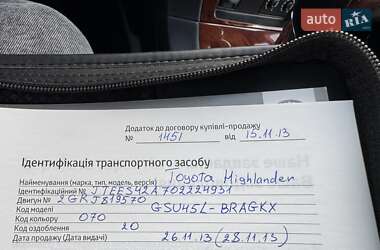 auto RIA
Додаток до договору купівлі-продажу
№ 1451 від 15.11.13
Ідентифікація транспортного засобу
Найменування (марка, тип, модель, версія) Toyota Highlander
Ідентифікаційний № JTEES42A702224931
Двигун № 2GRJ819570
Код моделі GSU45L-BRAGKX
Код кольору 070
Код оздоблення 20
Дата продажу (Дата видачі) 26.11.13 (28.11.13)